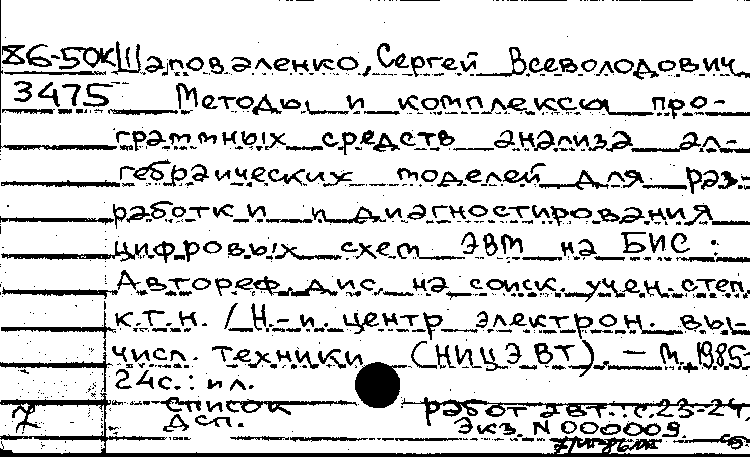 86-50К Шаповаленко, Сергей Всеволодович
3475 Методы и комплексы про-
граммных средств анализа ал-
гебраических моделей для раз-
работки и диагностирования
цифровых схем ЭВМ на БИС :
Автореф. дис. на соиск. учен. степ.
к.т.н. / Н.-и. центр электрон. вы-
числ. техники (НИЦЭВТ). — М., 1985
24с. : ил.
Список работ авт.: с.23-24.
7 Дсп. Экз. N 000009.